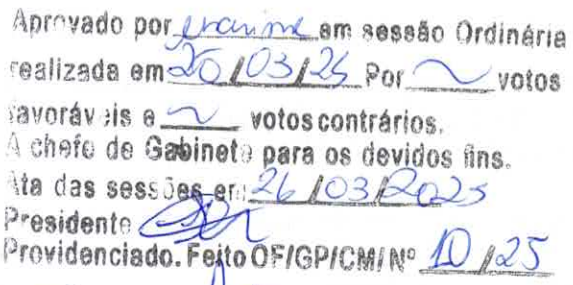 Aprovado por unanime em sessão Ordinária
realizada em 26/03/25 Por ~ votos
favoráveis e ~ votos contrários.
A chefe de Gabinete para os devidos fins.
Ata das sessões em 26/03/2025
Presidente
Providenciado. Feito OF/GP/CM/ Nº 10/25